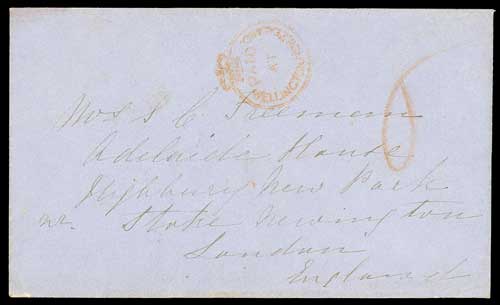 PAID
AT
WELLINGTON
Mrs J C Freemen
Adelaide House
Highbury New Park
nr. Stoke Newington
London
England